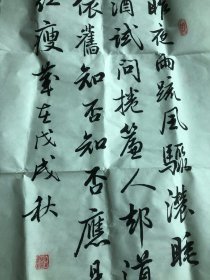 昨夜雨疏風驟濃睡
酒試問捲簾人却道
依舊知否知否應是
紅瘦歲在戊戌秋